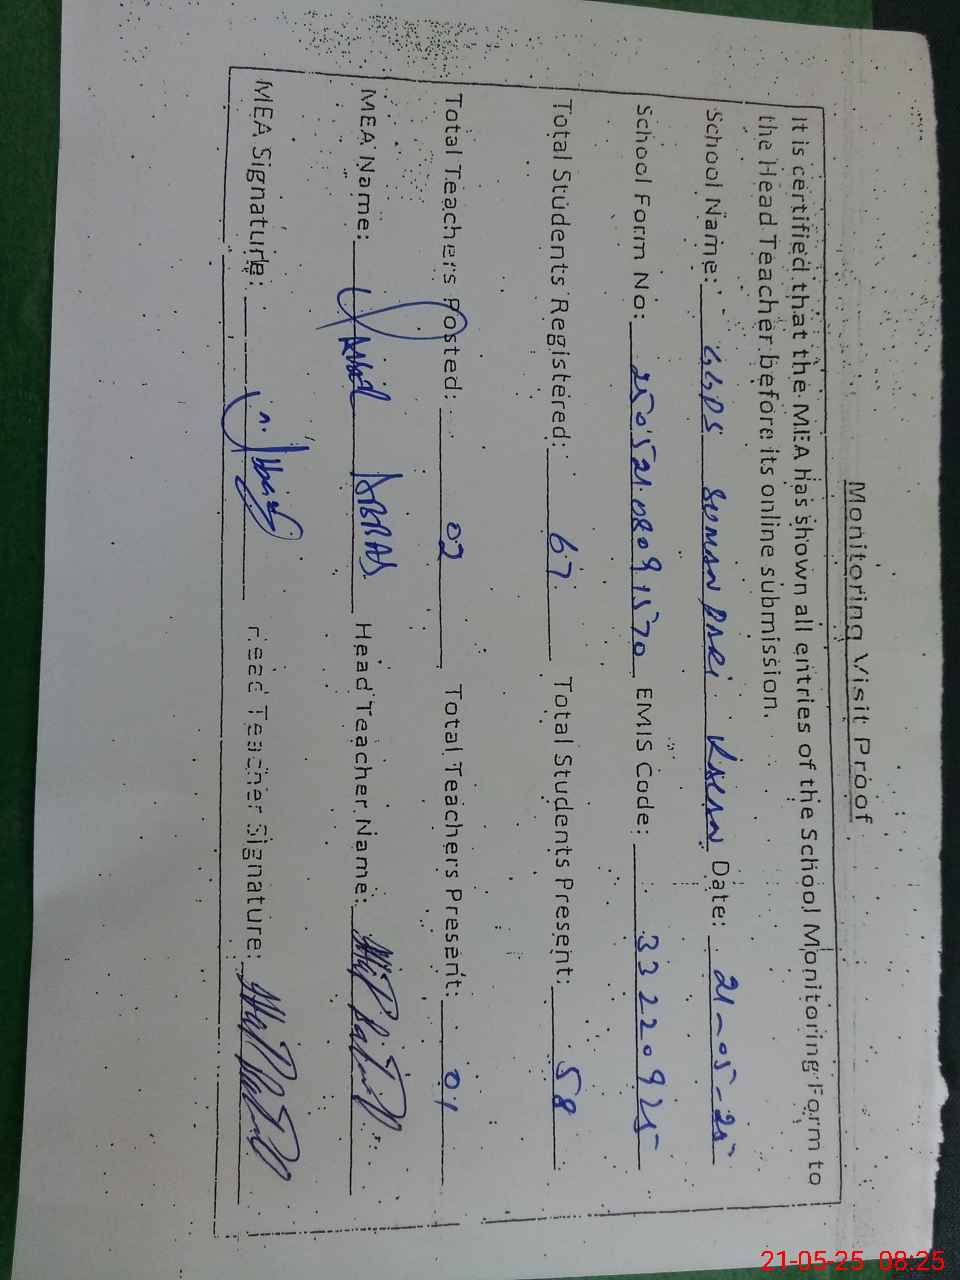 Monitoring Visit Proof
It is certified that the MEA has shown all entries of the School Monitoring Form to
the Head Teacher before its online submission.
School Name: GGPS SUMAN PARI KALAN Date: 21-05-25
School Form No: 250521.08091570 EMIS Code: 33220925
Total Students Registered: 67 Total Students Present: 58
Total Teachers Posted: 02 Total Teachers Present: 01
MEA Name: ABBAS Head Teacher Name:
MEA Signature: Head Teacher Signature:
21-05-25 08:25